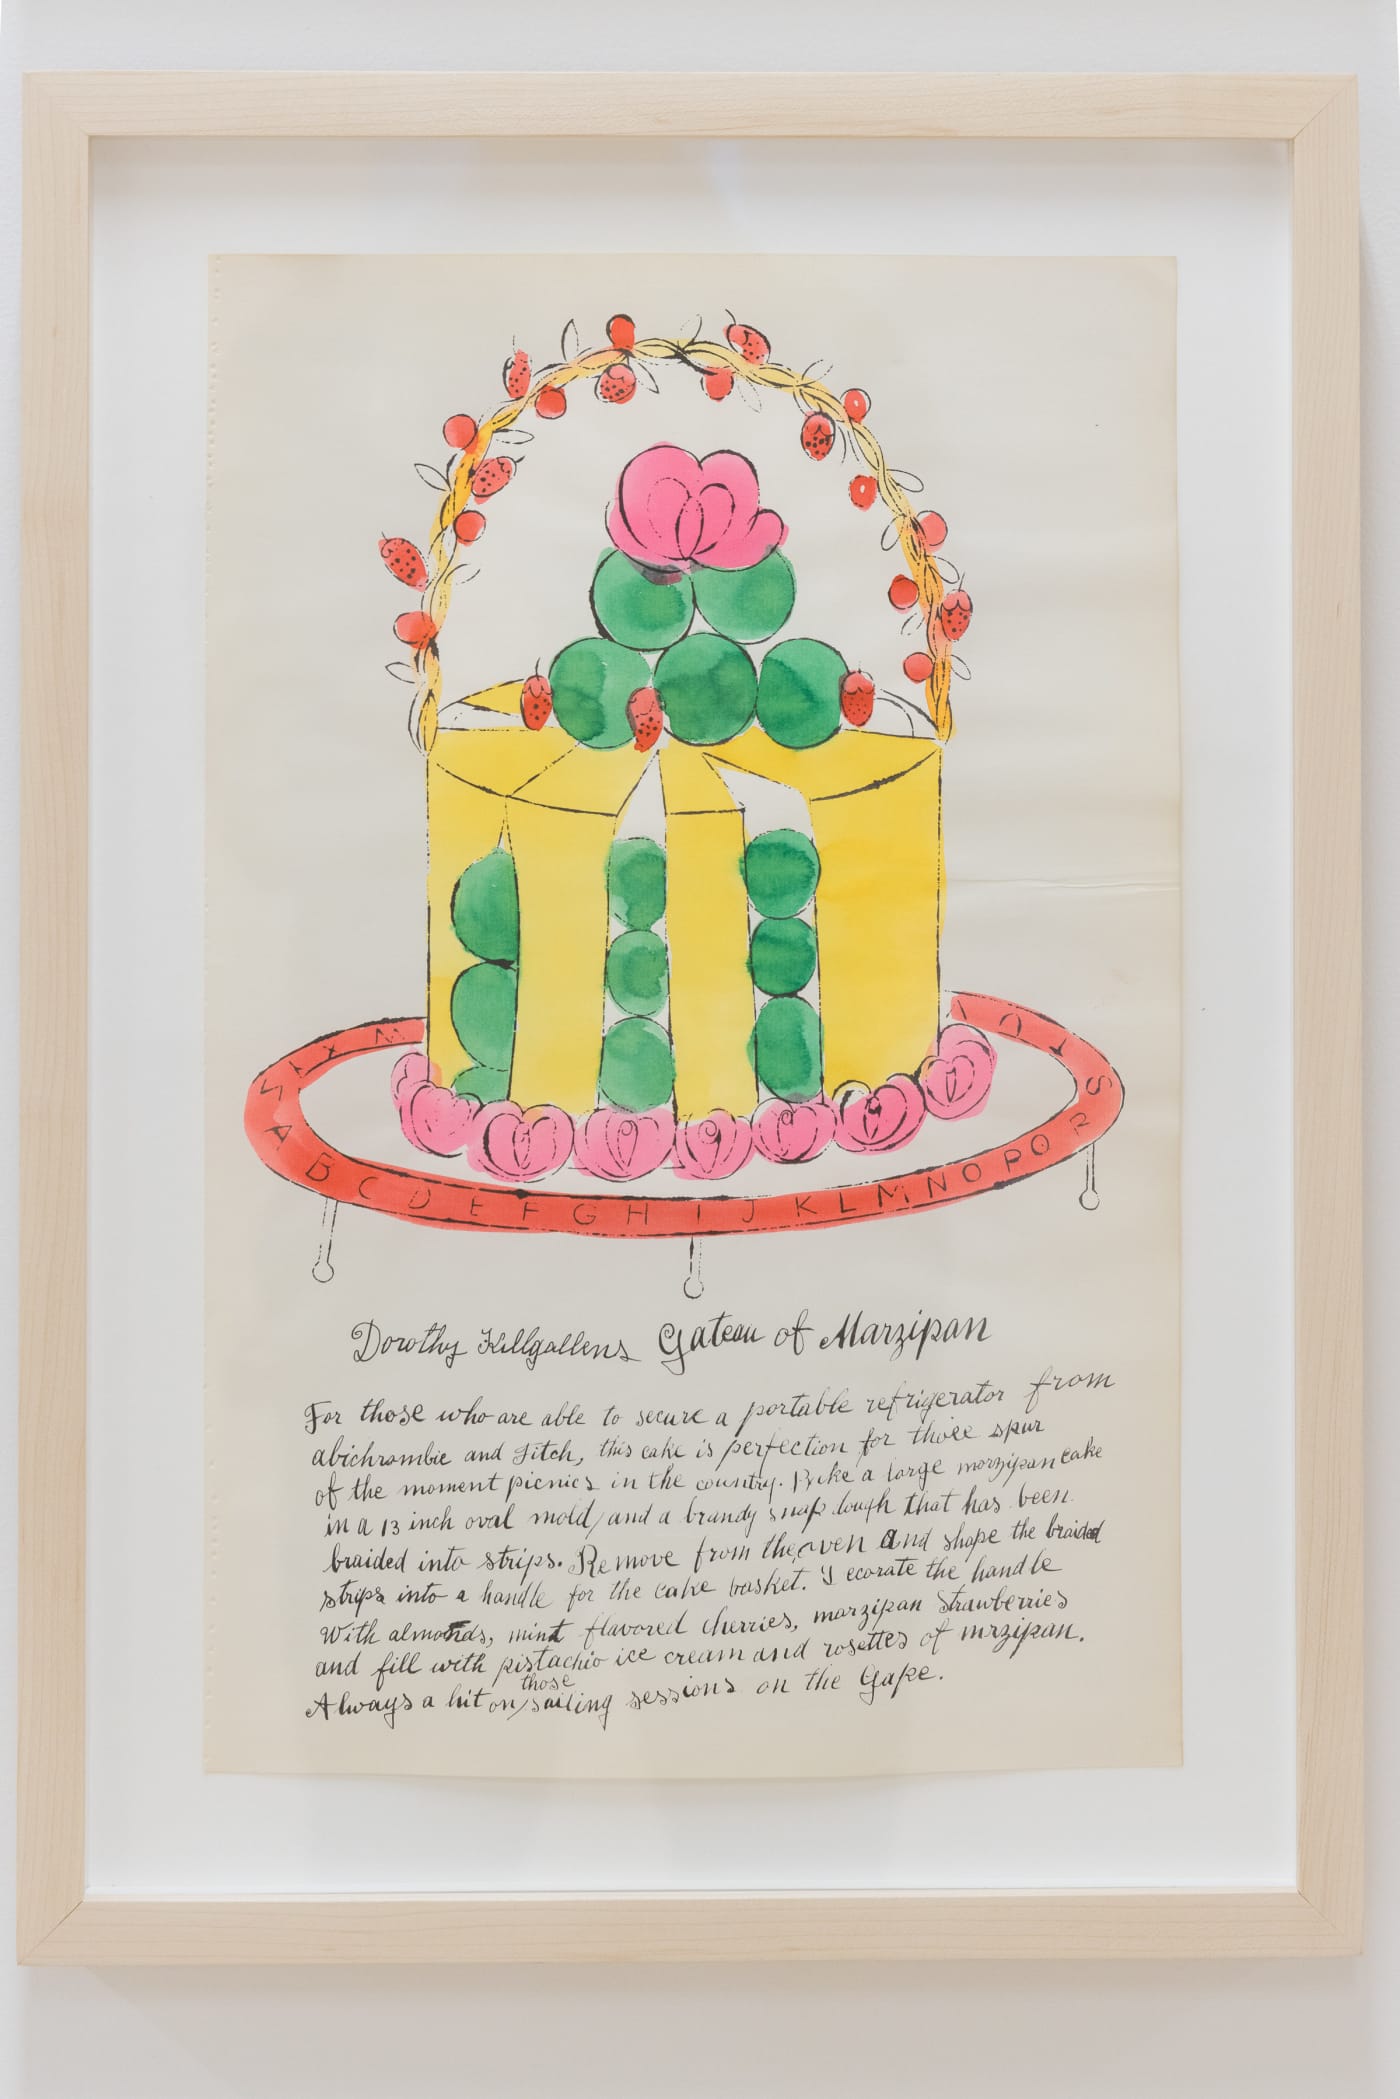 W X Y Z
A B C D E F G H I J K L M N O P Q R S T U V
Dorothy Killgallens Gateau of Marzipan
For those who are able to secure a portable refrigerator from
abichrombie and Fitch, this cake is perfection for those spur
of the moment picnics in the country. Bake a large marzipan cake
in a 13 inch oval mold, and a brandy snap dough that has been
braided into strips. Remove from the oven and shape the braided
strips into a handle for the cake basket. Decorate the handle
With almonds, mint flavored cherries, marzipan strawberries
and fill with pistachio ice cream and rosettes of mrzipan.
those
Always a hit on, sailing sessions on the Gape.